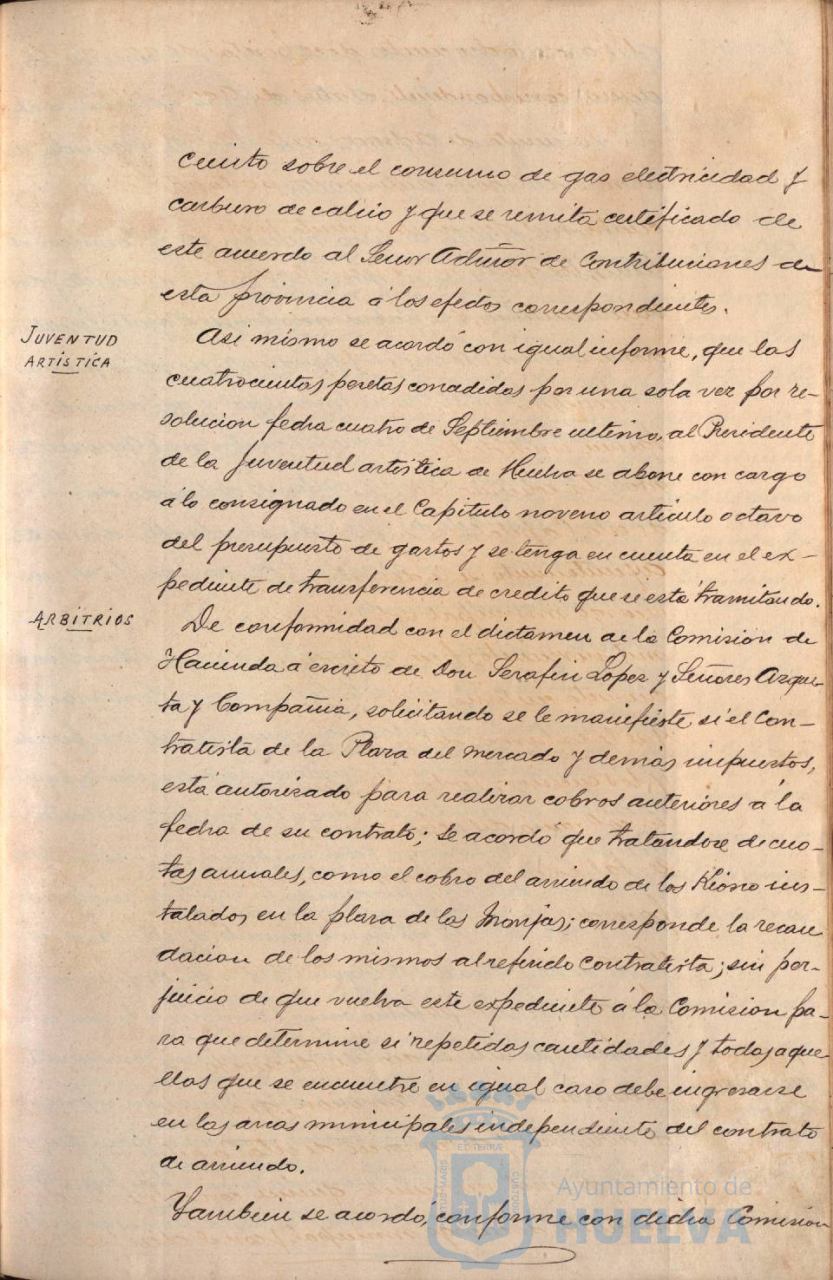 ciento sobre el consumo de gas electricidad y
carburo de calcio y que se remita certificado de
este acuerdo al Señor Admor de Contribuciones de
esta provincia á los efectos correspondientes.
JUVENTUD
ARTÍSTICA
Asi mismo se acordó con igual informe, que las
cuatrocientas pesetas concedidas por una sola vez por re-
solucion fecha cuatro de Septiembre ultimo, al Presidente
de la Juventud artística de Huelva se abone con cargo
á lo consignado en el Capitulo noveno articulo octavo
del presupuesto de gastos y se tenga en cuenta en el ex-
pediente de transferencia de credito que se está tramitando.
ARBITRIOS
De conformidad con el dictamen de la Comision de
Hacienda á escrito de Don Serafin Lopez y Señores Azque-
ta y Compañia, solicitando se le manifieste si el Con-
tratista de la Plaza del mercado y demás impuestos,
está autorizado para realizar cobros anteriores á la
fecha de su contrato; se acordó que tratandose de cuo-
tas anuales, como el cobro del arriendo de los Kiosco ins-
talados en la plaza de las Monjas; corresponde la recau
dacion de los mismos al referido contratista; sin per-
juicio de que vuelva este expediente á la Comision pa-
ra que determine si repetidas cantidades y todas aque-
llas que se encuentre en igual caso debe ingresarse
en las arcas municipales independiente del contrato
de arriendo.
Tambien se acordó, conforme con dicha Comision
Ayuntamiento de
HUELVA